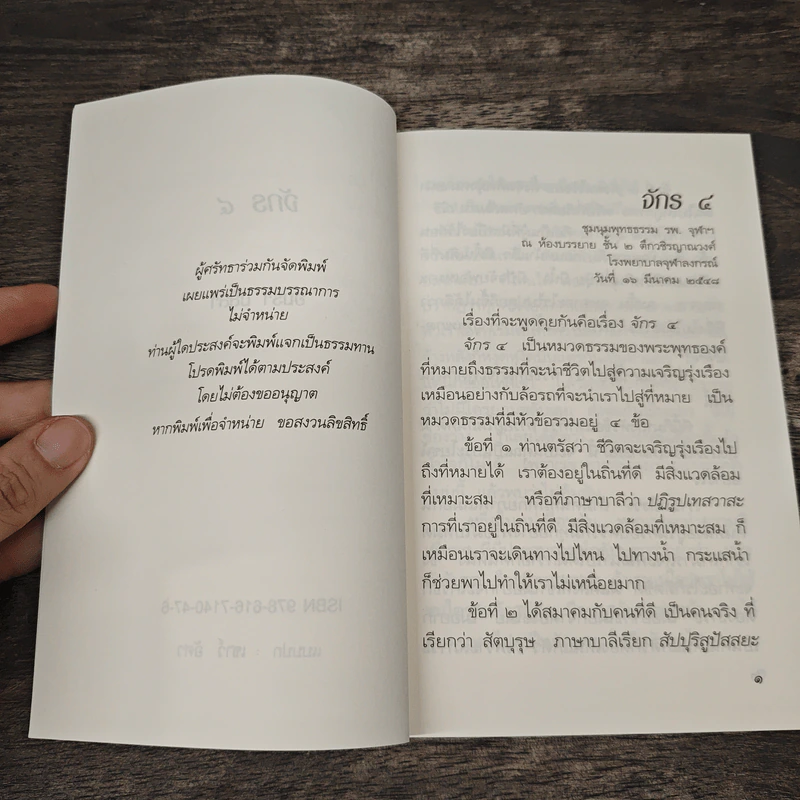 ผู้ศรัทธาร่วมกันจัดพิมพ์
เผยแพร่เป็นธรรมบรรณาการ
ไม่จำหน่าย
ท่านผู้ใดประสงค์จะพิมพ์แจกเป็นธรรมทาน
โปรดพิมพ์ได้ตามประสงค์
โดยไม่ต้องขออนุญาต
หากพิมพ์เพื่อจำหน่าย ขอสงวนลิขสิทธิ์
จักร ๔
ชุมนุมพุทธธรรม รพ. จุฬาฯ
ณ ห้องบรรยาย ชั้น ๒ ตึกวชิรญาณวงศ์
โรงพยาบาลจุฬาลงกรณ์
วันที่ ๑๖ มีนาคม ๒๕๔๘
เรื่องที่จะพูดคุยกันคือเรื่อง จักร ๔
จักร ๔ เป็นหมวดธรรมของพระพุทธองค์
ที่หมายถึงธรรมที่จะนำชีวิตไปสู่ความเจริญรุ่งเรือง
เหมือนอย่างกับล้อรถที่จะนำเราไปสู่ที่หมาย เป็น
หมวดธรรมที่มีหัวข้อรวมอยู่ ๔ ข้อ
ข้อที่ ๑ ท่านตรัสว่า ชีวิตจะเจริญรุ่งเรืองไป
ถึงที่หมายได้ เราต้องอยู่ในถิ่นที่ดี มีสิ่งแวดล้อม
ที่เหมาะสม หรือที่ภาษาบาลีว่า ปฏิรูปเทสวาสะ
การที่เราอยู่ในถิ่นที่ดี มีสิ่งแวดล้อมที่เหมาะสม ก็
เหมือนเราจะเดินทางไปไหน ไปทางน้ำ กระแสน้ำ
ก็ช่วยพาไปทำให้เราไม่เหนื่อยมาก
ข้อที่ ๒ ได้สมาคมกับคนที่ดี เป็นคนจริง ที่
เรียกว่า สัตบุรุษ ภาษาบาลีเรียก สัปปุริสูปัสสยะ
๑